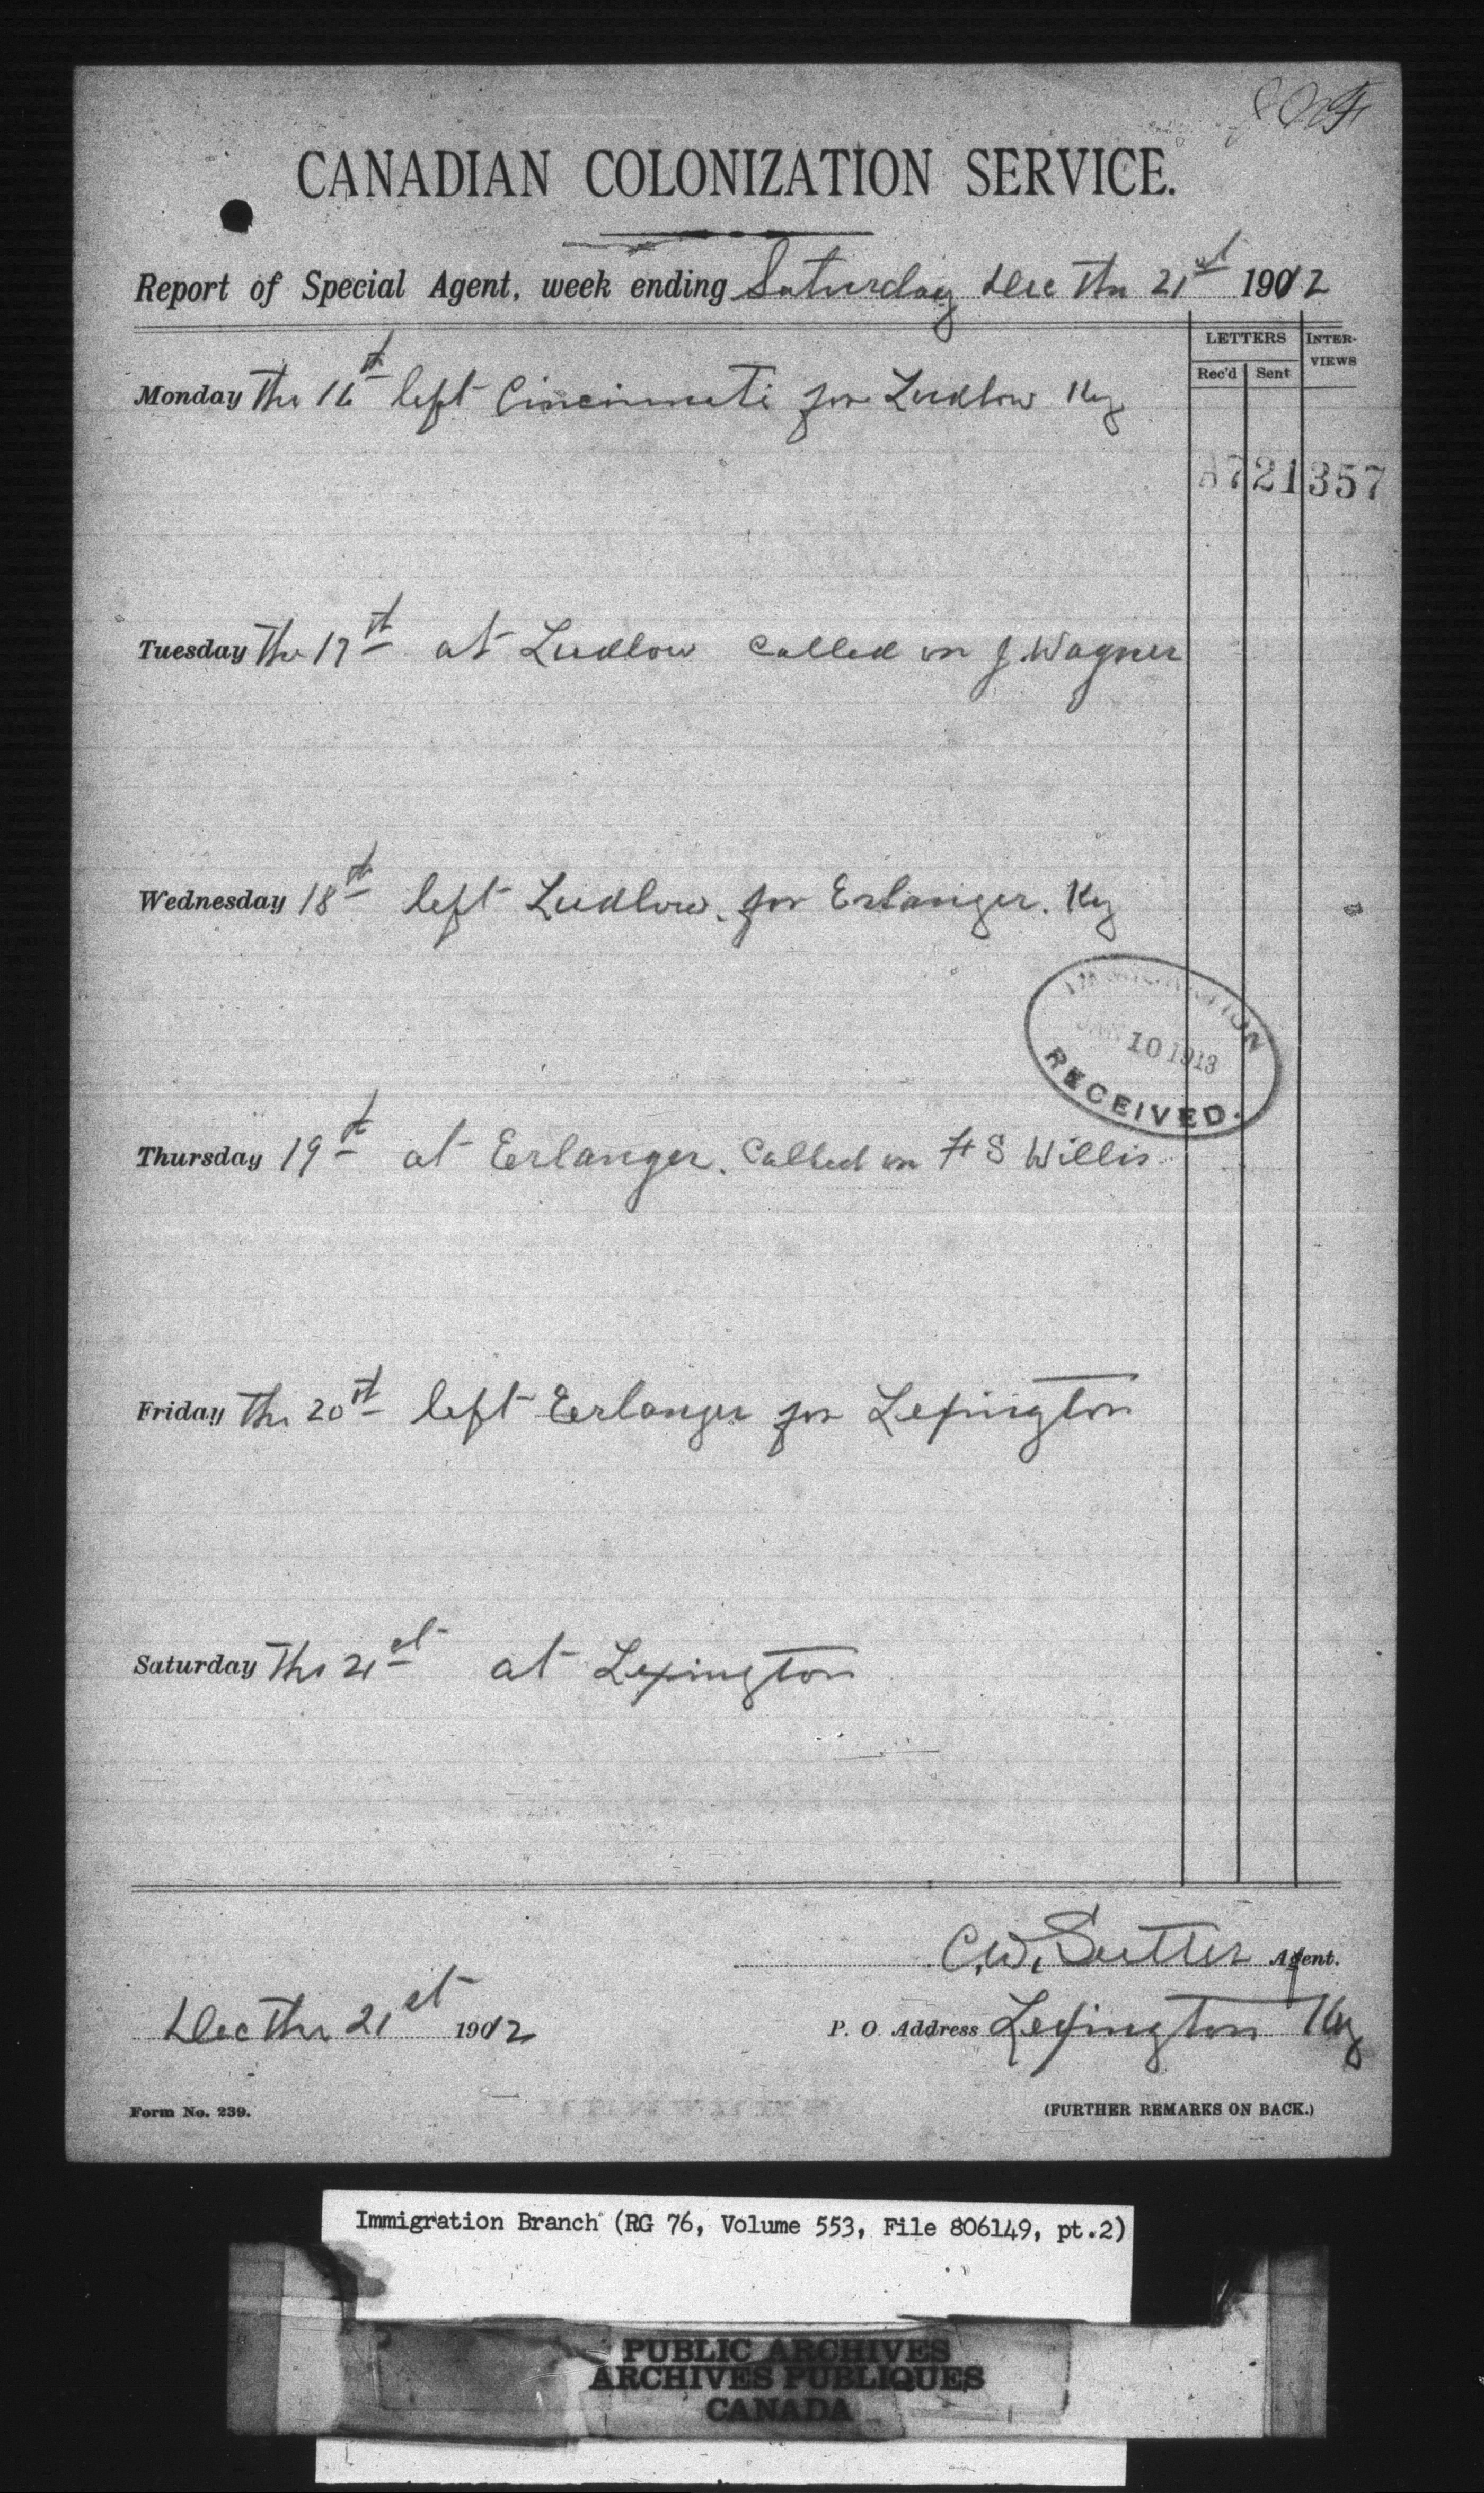 CANADIAN COLONIZATION SERVICE.
Report of Special Agent, week ending Saturday Dec the 21st 1912
LETTERS INTER-VIEWS
Rec'd Sent
Monday the 16th left Cincinnati for Ludlow Ky
A721357
Tuesday the 17th at Ludlow Called on J. Wagner
Wednesday 18th left Ludlow. for Erlanger. Ky
IMMIGRATION
JAN 10 1913
RECEIVED.
Thursday 19th at Erlanger. Called on H S Willis
Friday the 20th left Erlanger for Lexington
Saturday the 21st at Lexington
C. W. Sutter Agent.
Dec the 21st 1912
P. O. Address Lexington Ky
Form No. 239.
(FURTHER REMARKS ON BACK.)
Immigration Branch (RG 76, Volume 553, File 806149, pt.2)
PUBLIC ARCHIVES
ARCHIVES PUBLIQUES
CANADA